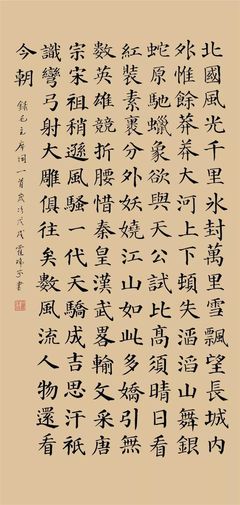 北國風光千里氷封萬里雪飄望長城内
外惟餘莽莽大河上下頓失滔滔山舞銀
蛇原馳蠟象欲與天公試比高須晴日看
紅裝素裹分外妖嬈江山如此多嬌引無
數英雄競折腰惜秦皇漢武略輸文采唐
宗宋祖稍遜風騷一代天驕成吉思汗祇
識彎弓射大雕俱往矣數風流人物還看
今朝
錄毛主席詞一首歲次戊戌霍書